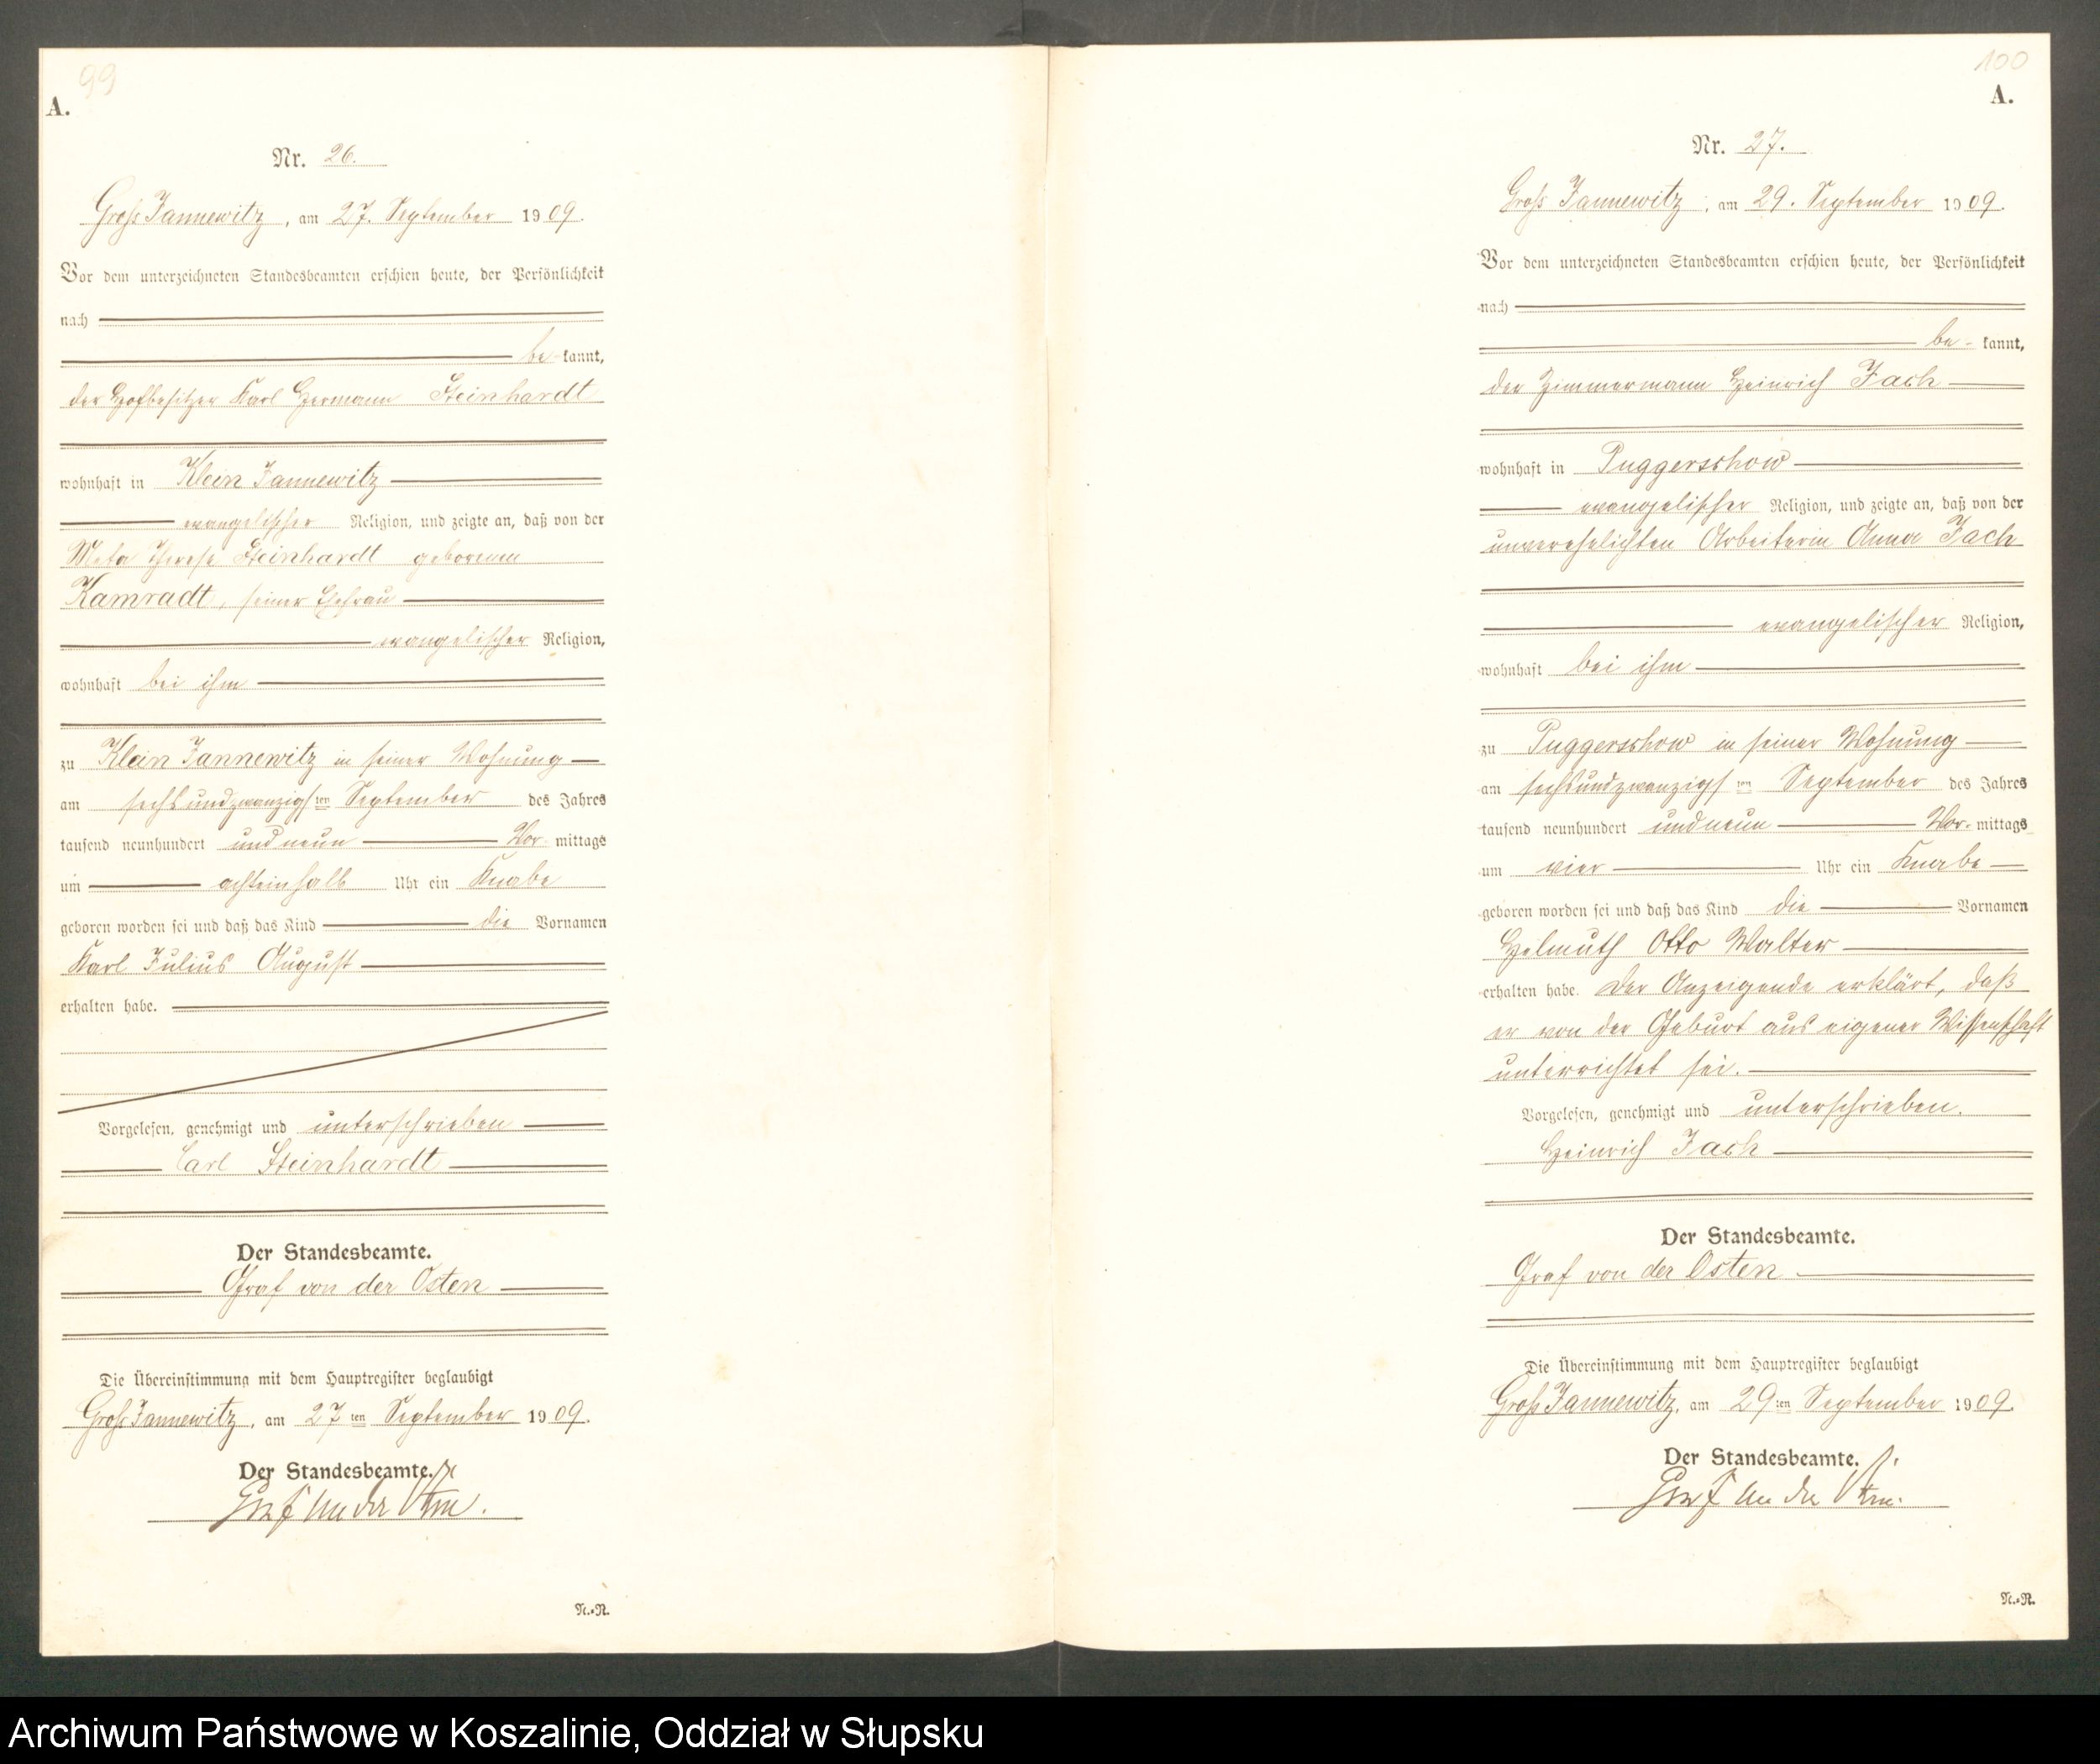 99
A.
Nr. 26.
Groß Jannewitz, am 27. September 1909.
Vor dem unterzeichneten Standesbeamten erschien heute, der Persönlichkeit
nach
be kannt,
der Hofbesitzer Karl Hermann Steinhardt
wohnhaft in Klein Jannewitz
evangelischer Religion, und zeigte an, daß von der
Meta Therese Steinhardt geborenen
Kamradt, seiner Ehefrau
evangelischer Religion,
wohnhaft bei ihm
zu Klein Jannewitz in seiner Wohnung
am sechsundzwanzigsten September des Jahres
tausend neunhundert und neun Vor mittags
um achteinhalb Uhr ein Knabe
geboren worden sei und daß das Kind die Vornamen
Karl Julius August
erhalten habe.
Vorgelesen, genehmigt und unterschrieben
Carl Steinhardt
Der Standesbeamte.
Graf von der Osten
Die Übereinstimmung mit dem Hauptregister beglaubigt
Groß Jannewitz, am 27ten September 1909.
Der Standesbeamte.
Graf von der Osten.
N.=R.
100
A.
Nr. 27.
Groß Jannewitz, am 29. September 1909.
Vor dem unterzeichneten Standesbeamten erschien heute, der Persönlichkeit
nach
be- kannt,
der Zimmermann Heinrich Jach
wohnhaft in Puggerschow
evangelischer Religion, und zeigte an, daß von der
unverehelichten Arbeiterin Anna Jach
evangelischer Religion,
wohnhaft bei ihm
zu Puggerschow in seiner Wohnung
am sechsundzwanzigsten September des Jahres
tausend neunhundert und neun Vor- mittags
um vier Uhr ein Knabe
geboren worden sei und daß das Kind die Vornamen
Helmuth Otto Walter
erhalten habe. Der Anzeigende erklärt, daß
er von der Geburt aus eigener Wissenschaft
unterrichtet sei.
Vorgelesen, genehmigt und unterschrieben.
Heinrich Jach
Der Standesbeamte.
Graf von der Osten
Die Übereinstimmung mit dem Hauptregister beglaubigt
Groß Jannewitz, am 29ten September 1909.
Der Standesbeamte.
Graf von der Osten.
N.=R.
Archiwum Państwowe w Koszalinie, Oddział w Słupsku